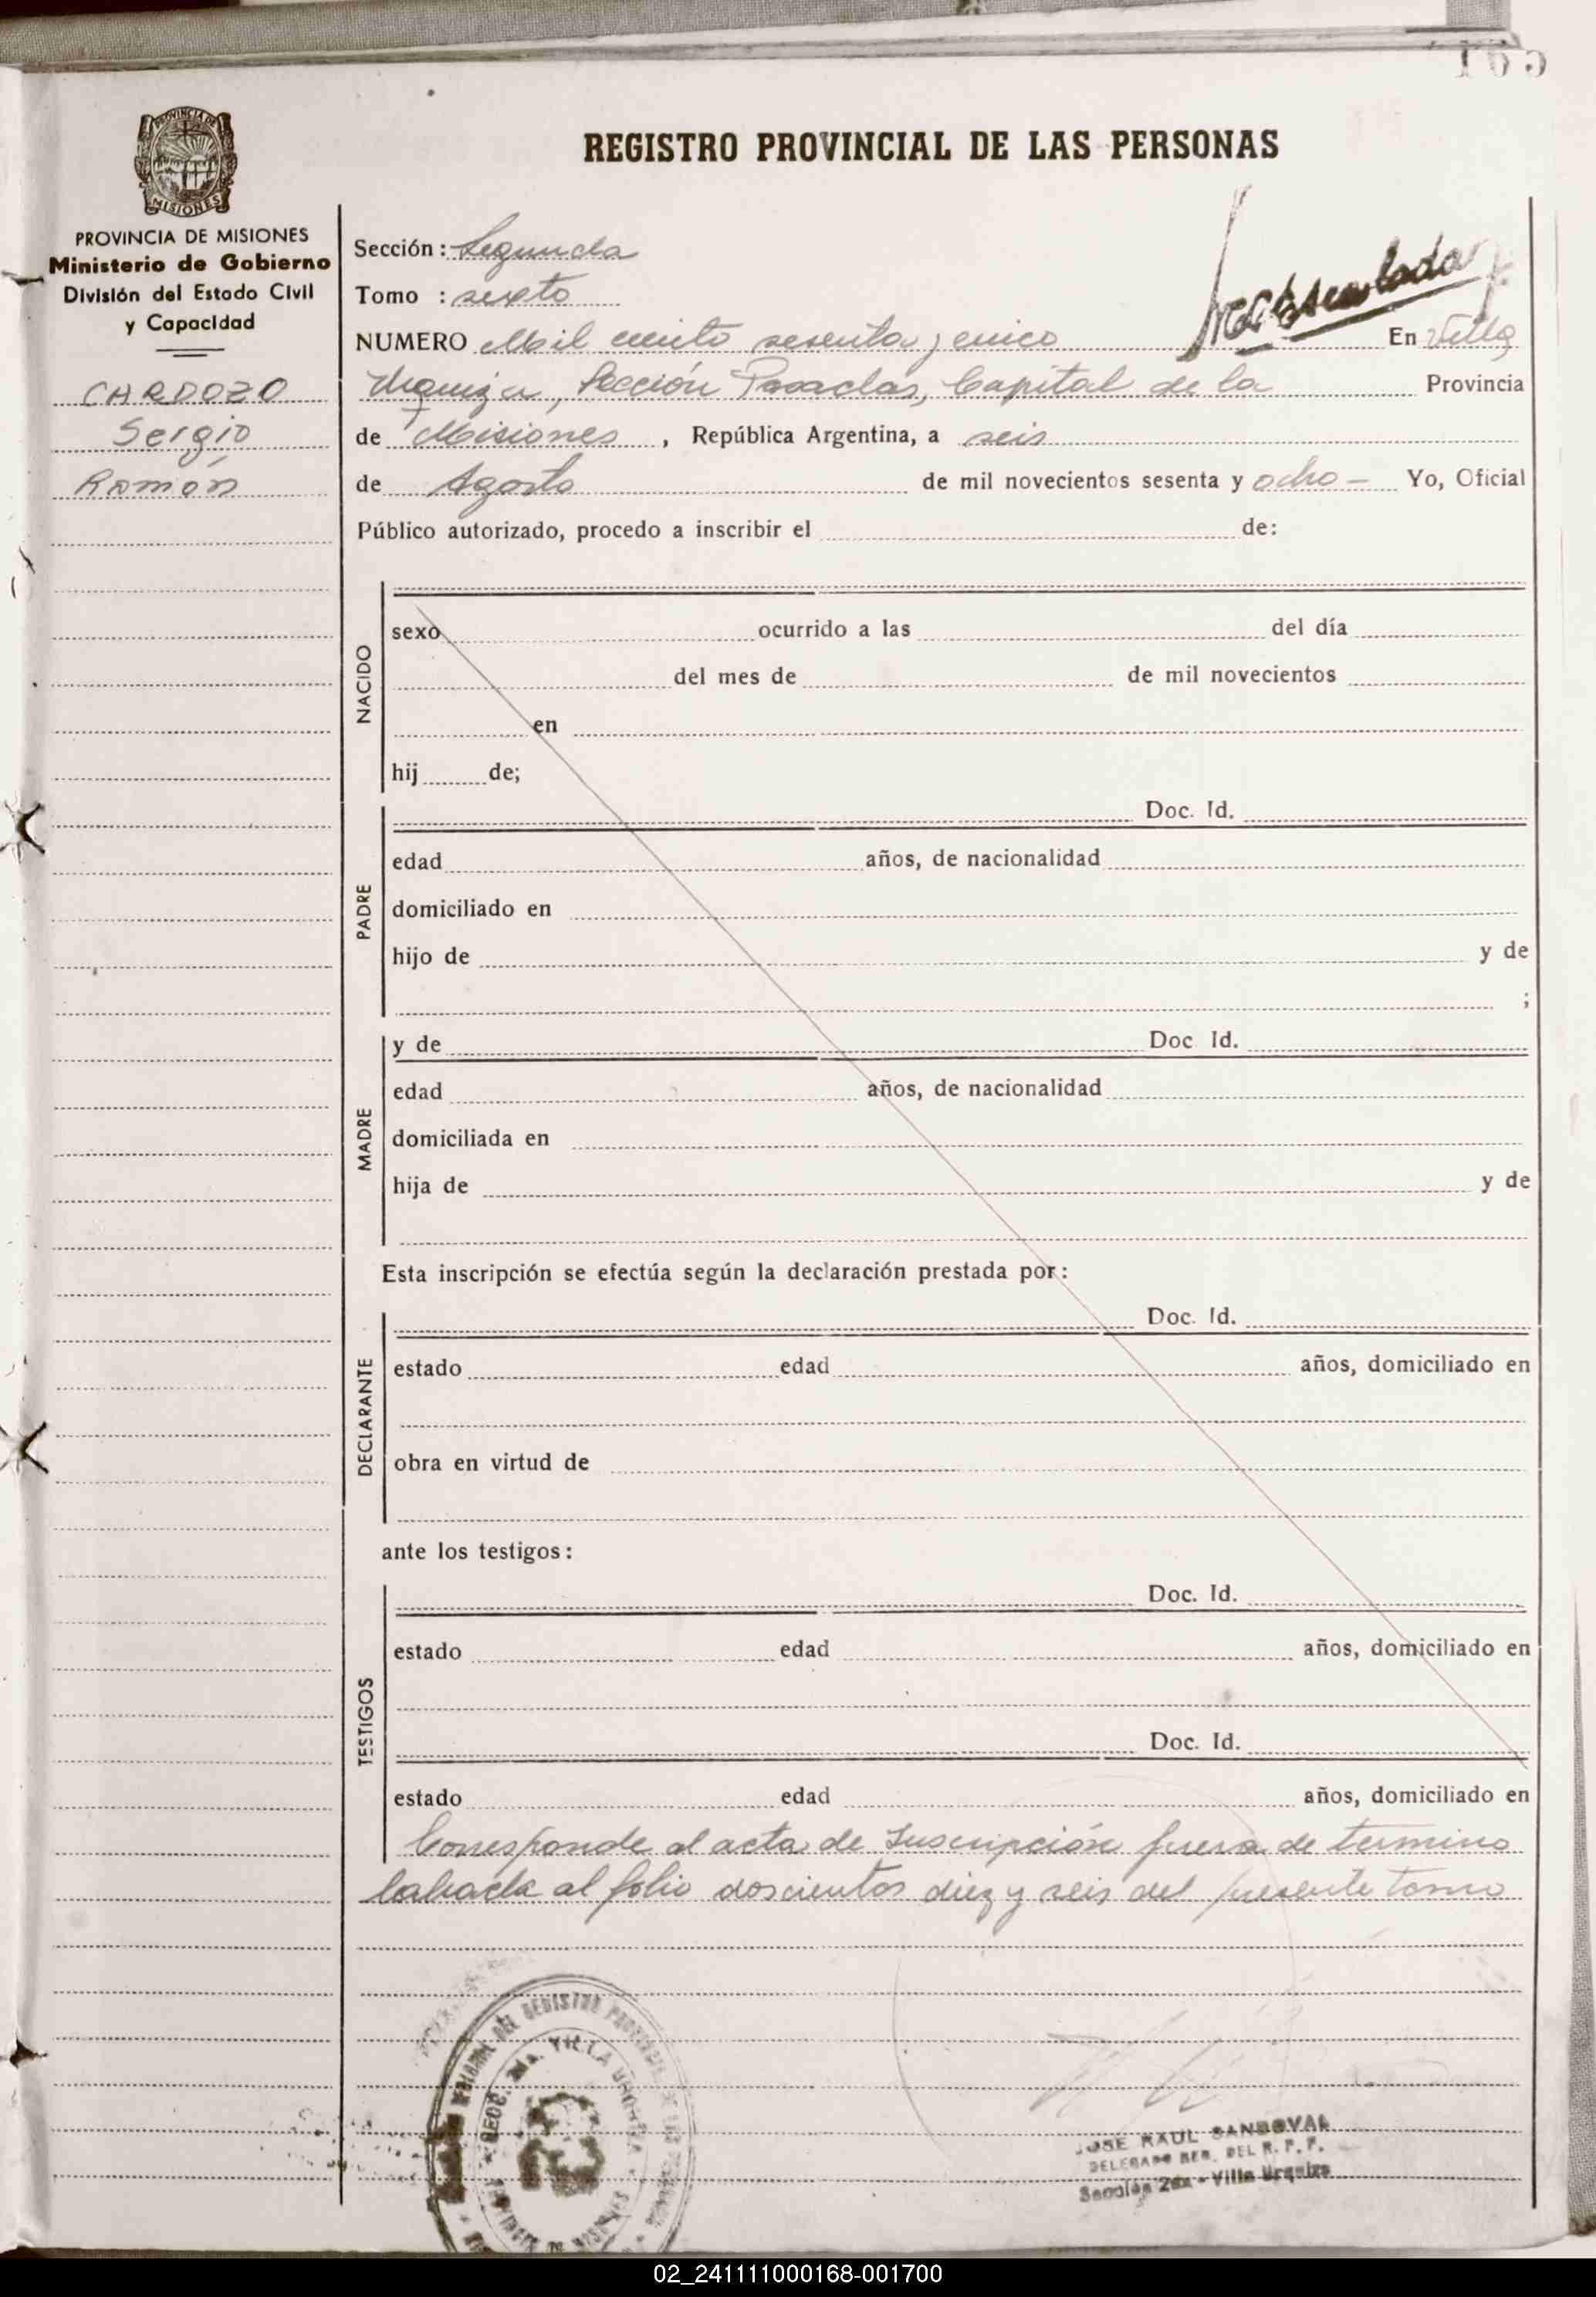 165
PROVINCIA DE
MISIONES
REGISTRO PROVINCIAL DE LAS PERSONAS
PROVINCIA DE MISIONES
Ministerio de Gobierno
División del Estado Civil
y Capacidad
CARDOZO
Sergio
Ramón
Sección: Segunda
Tomo : sexto
NUMERO Mil ciento sesenta y cinco En Villa
Urquiza, Sección Posadas, Capital de la Provincia
de Misiones, República Argentina, a seis
de Agosto de mil novecientos sesenta y ocho — Yo, Oficial
Público autorizado, procedo a inscribir el de:
NACIDO
sexo ocurrido a las del día
del mes de de mil novecientos
en
hij de;
PADRE
Doc. Id.
edad años, de nacionalidad
domiciliado en
hijo de y de
;
MADRE
y de Doc Id.
edad años, de nacionalidad
domiciliada en
hija de y de
Esta inscripción se efectúa según la declaración prestada por:
DECLARANTE
Doc. Id.
estado edad años, domiciliado en
obra en virtud de
ante los testigos:
TESTIGOS
Doc. Id.
estado edad años, domiciliado en
Doc. Id.
estado edad años, domiciliado en
Corresponde al acta de Inscripción fuera de termino
labrada al folio doscientos diez y seis del presente tomo
DEL REGISTRO
SECC. 2da. VILLA URQUIZA
JOSE RAUL SANDOVAL
DELEGADO DEL R. P. P.
Sección 2da - Villa Urquiza
02_241111000168-001700